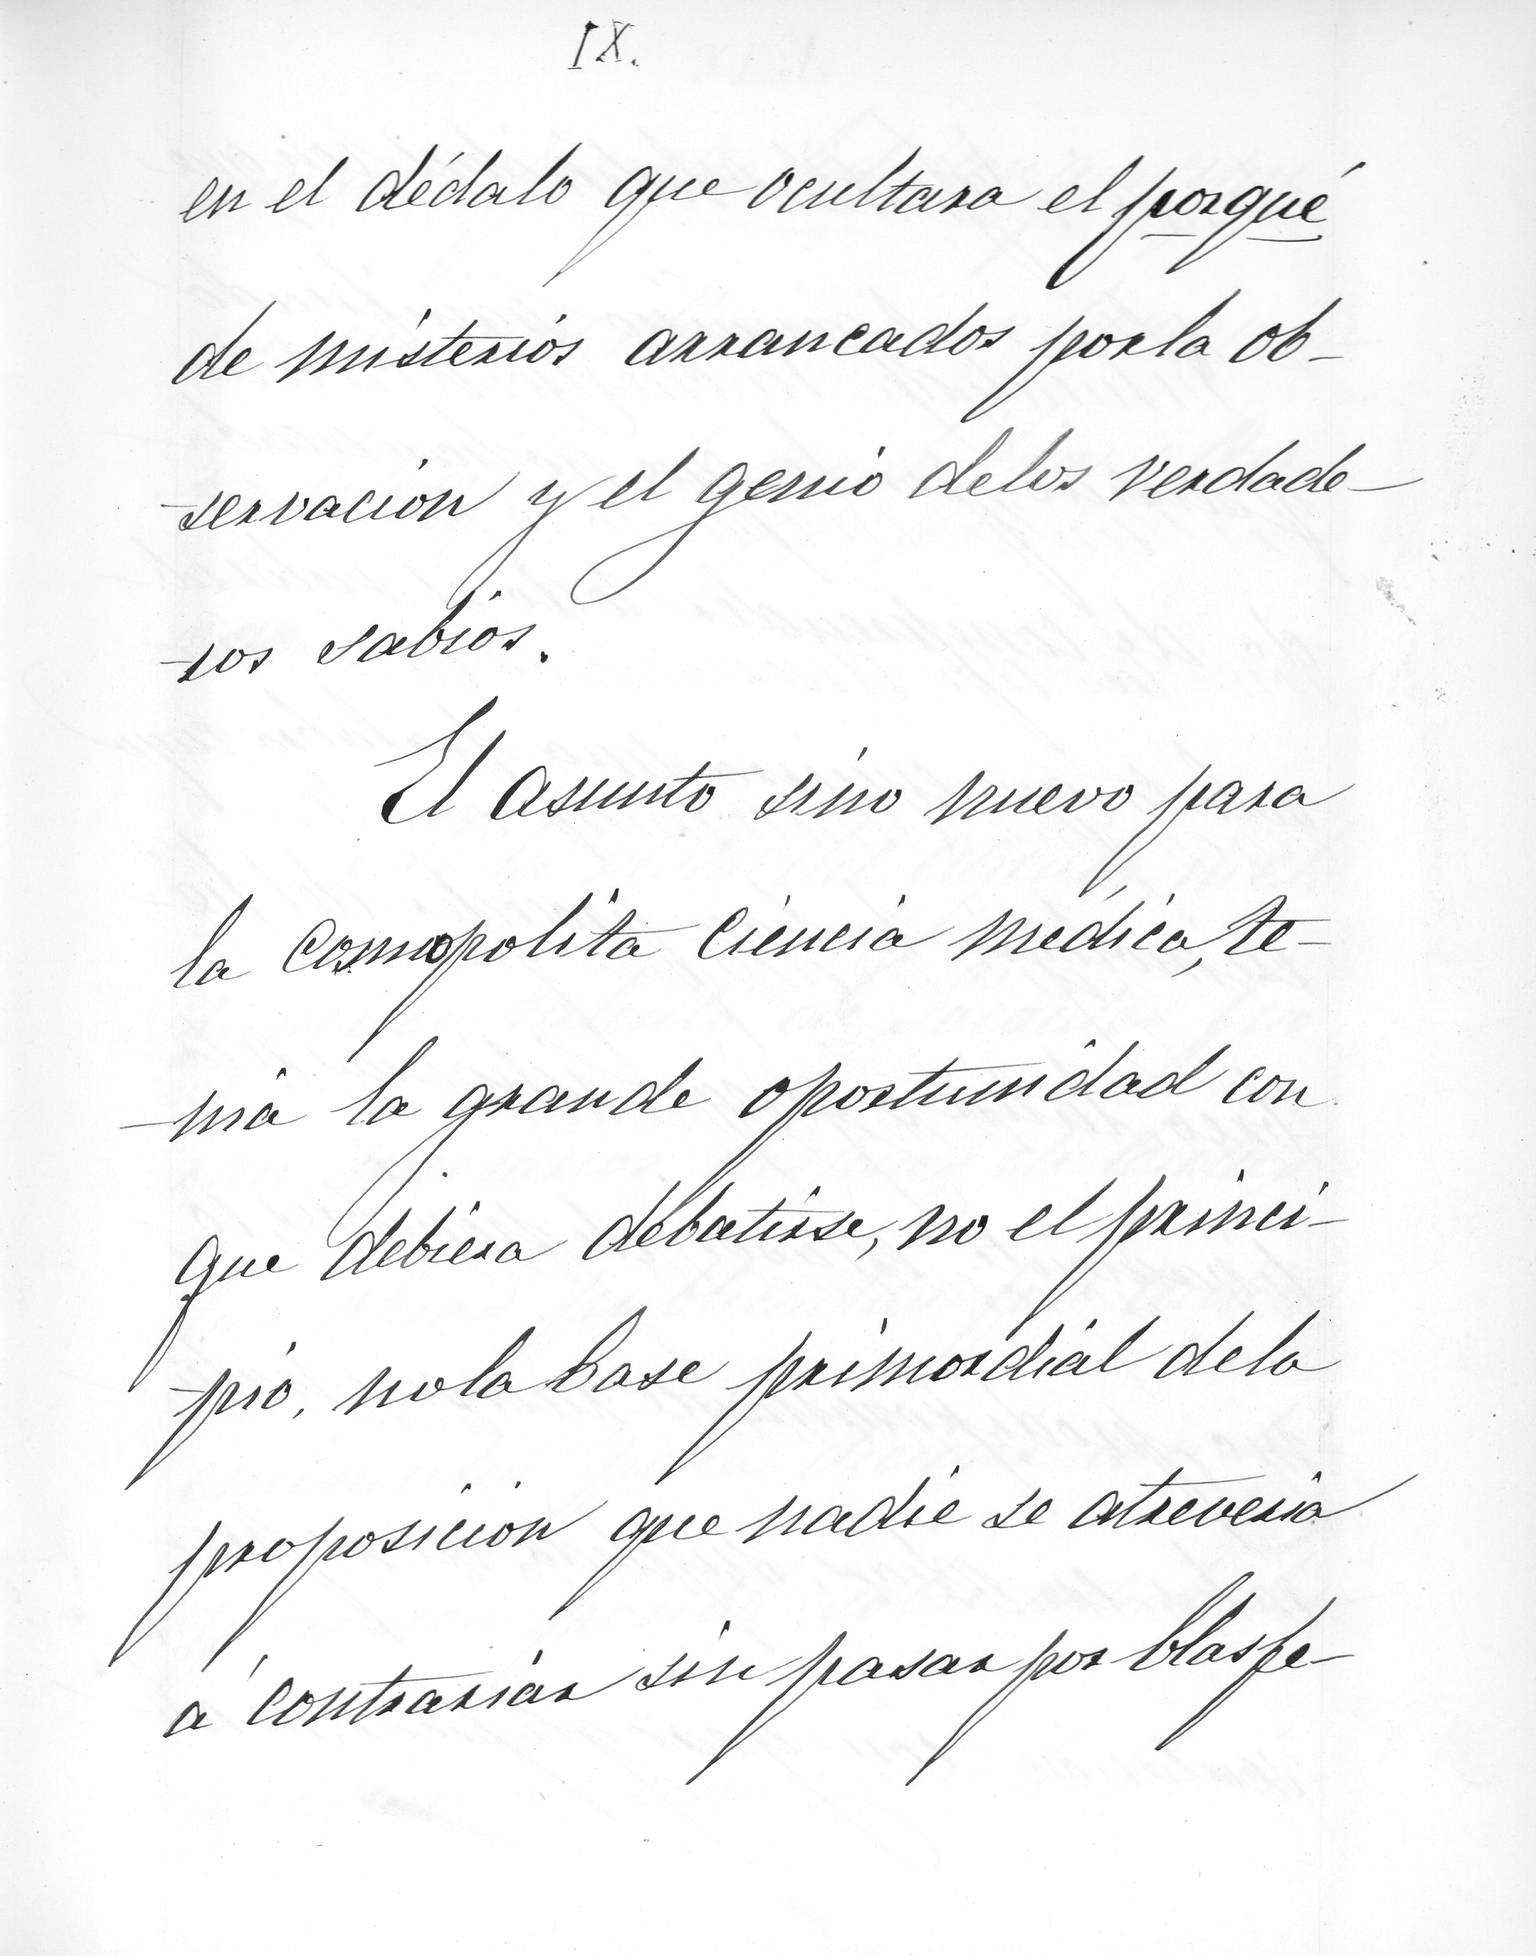 IX.
en el dédalo que ocultara el porqué
de misterios arrancados por la ob-
-servacion y el genio de los verdade-
-ros sabios.
El asunto sino nuevo para
la cosmopolita Ciencia médica, te-
-nia la grande oportunidad con
que debiera debatirse, no el princi-
-pio, no la base primordial de la
proposicion que nadie se atreveria
á contrariar sin pasar por blasfe-